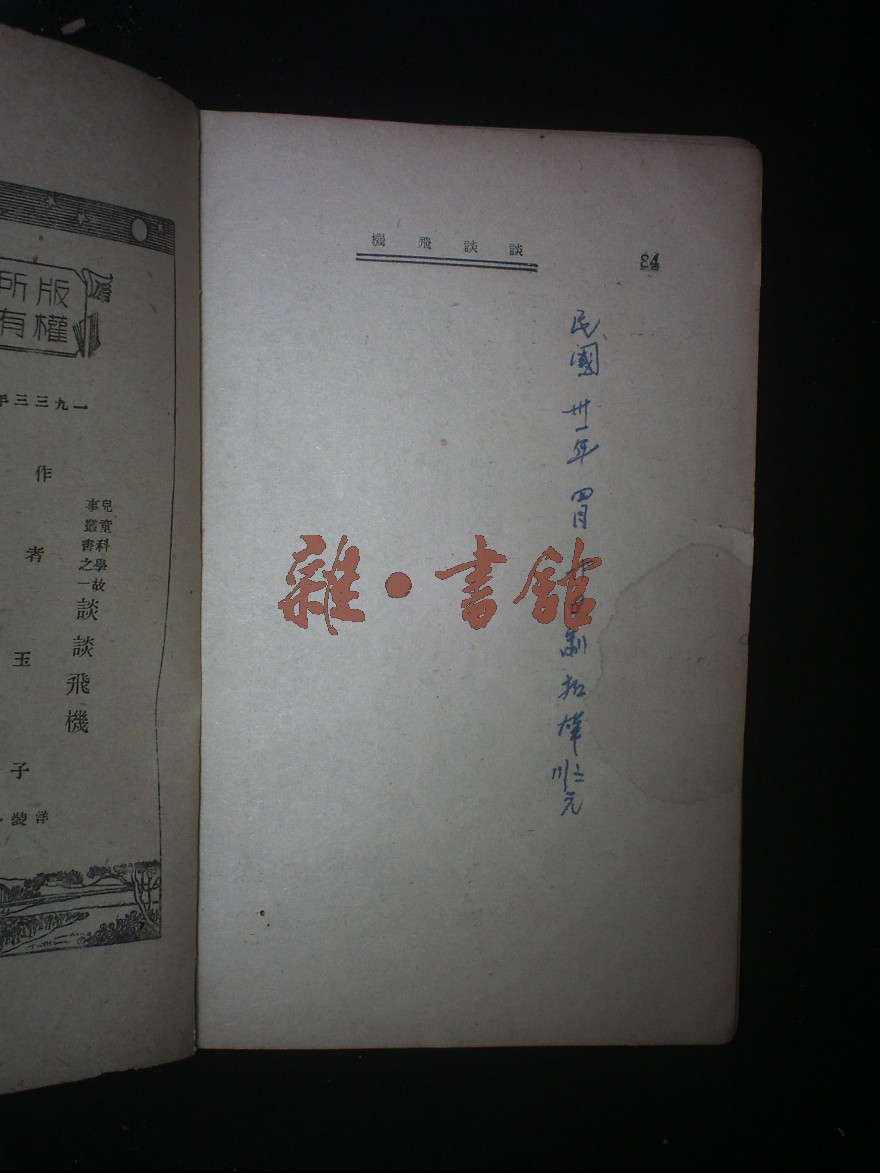 談談飛機
84
民國卅一年四月
元
雜·書館
版權
所有
一九三三年
兒童科學故
事叢書之一
談談飛機
作者玉子
洋裝